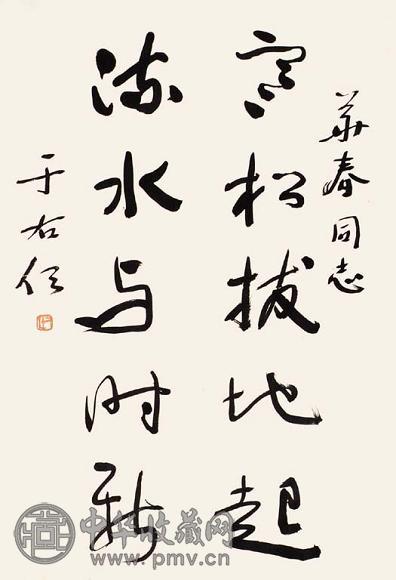 华春同志
寒松拔地起
流水与时新
于右任
中华收藏网
www.pmv.cn